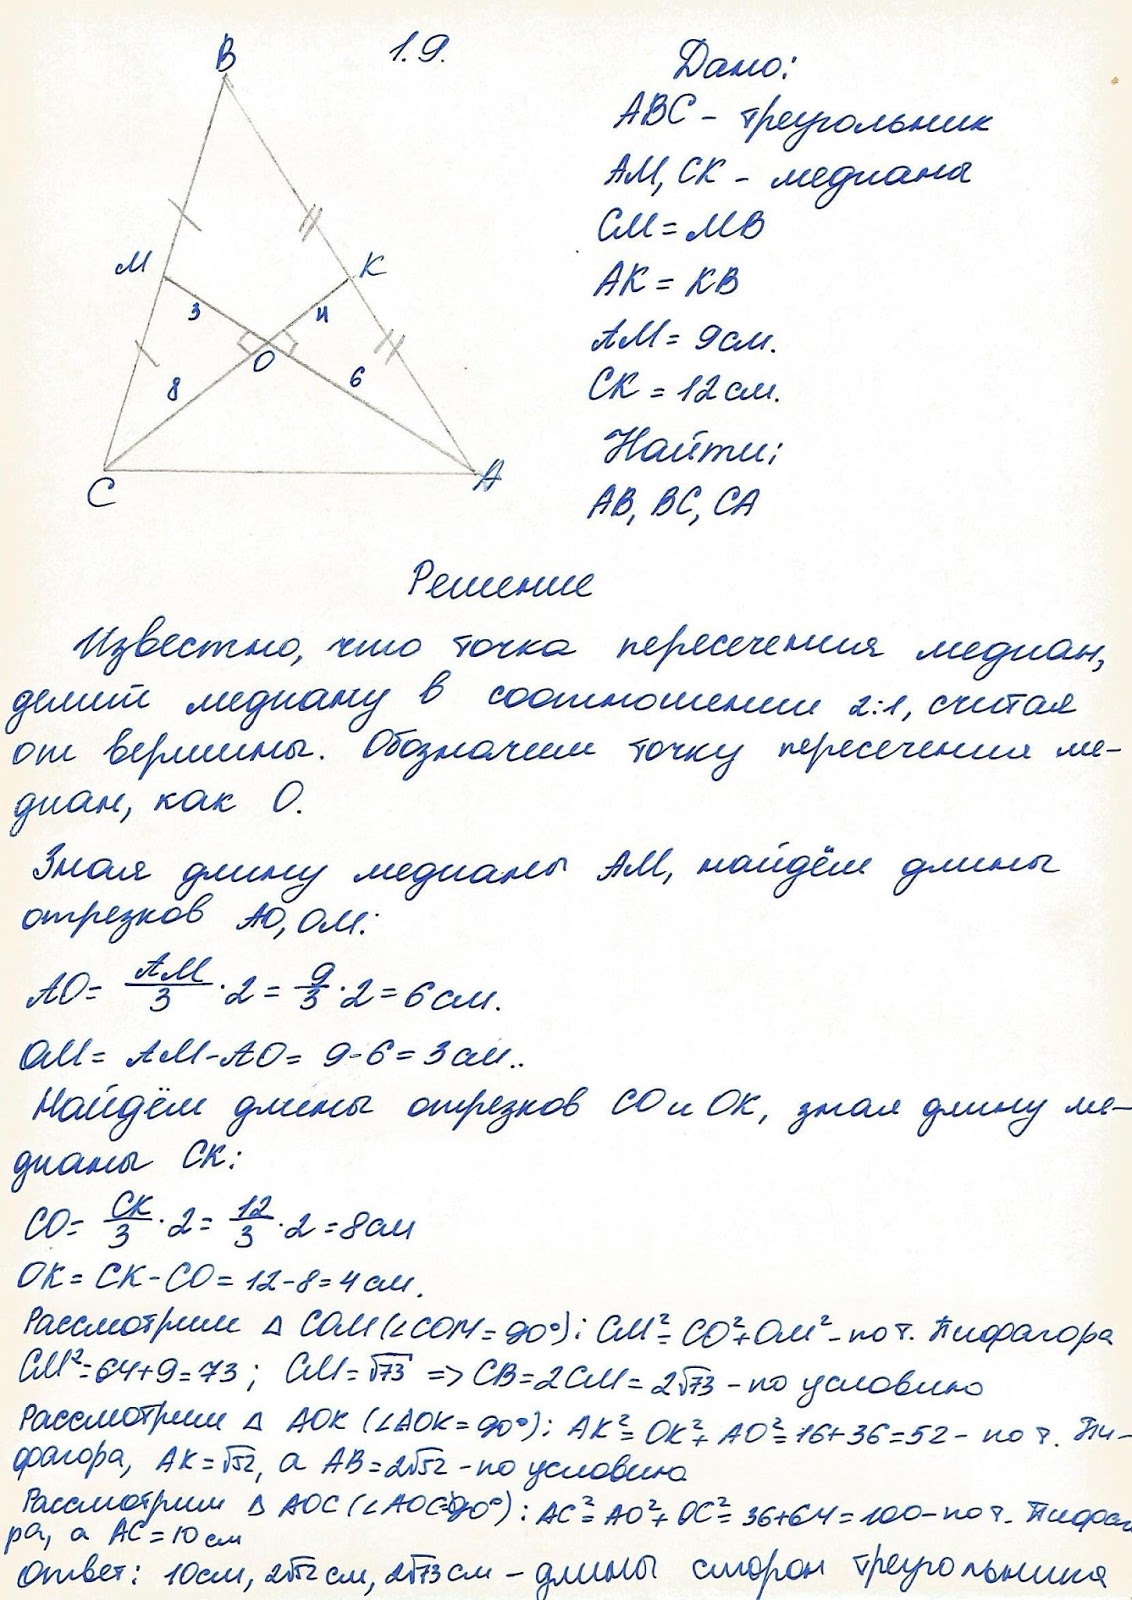 1.9.
B
M
K
3
4
O
8
6
C
A
Дано:
ABC – треугольник
AM, CK – медианы
CM = MB
AK = KB
AM = 9 см.
CK = 12 см.
Найти:
AB, BC, CA
Решение
Известно, что точка пересечения медиан,
делит медиану в соотношении 2:1, считая
от вершины. Обозначим точку пересечения ме-
диан, как O.
Зная длину медианы AM, найдём длины
отрезков AO, OM:
AO = AM/3 · 2 = 9/3 · 2 = 6 см.
OM = AM - AO = 9 - 6 = 3 см..
Найдём длины отрезков CO и OK, зная длину ме-
дианы CK:
CO = CK/3 · 2 = 12/3 · 2 = 8 см
OK = CK - CO = 12 - 8 = 4 см.
Рассмотрим △ COM (∠COM = 90°): CM² = CO² + OM² - по т. Пифагора
CM² = 64 + 9 = 73; CM = √73 => CB = 2CM = 2√73 - по условию
Рассмотрим △ AOK (∠AOK = 90°): AK² = OK² + AO² = 16 + 36 = 52 - по т. Пи-
фагора, AK = √52, а AB = 2√52 - по условию
Рассмотрим △ AOC (∠AOC = 90°): AC² = AO² + OC² = 36 + 64 = 100 - по т. Пифаго
ра, а AC = 10 см
Ответ: 10 см, 2√52 см, 2√73 см - длины сторон треугольника